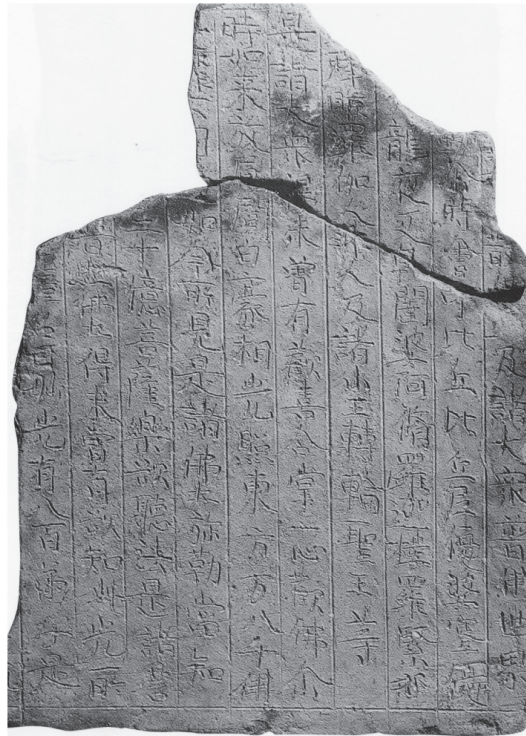 及諸大衆普佛世界
時會中比丘比丘尼優婆塞優
龍夜叉乾闥婆阿脩羅迦樓羅緊那
摩睺羅伽人非人及諸小王轉輪聖王等
是諸大衆得未曾有歡喜合掌一心觀佛尒
時如来放眉間白豪相光照東方万八千佛
如今所見是諸佛土弥勒當知
二十億菩薩樂欲聽法是諸菩
普照佛土得未曾有欲知此光所
名曰妙光有八百弟子是